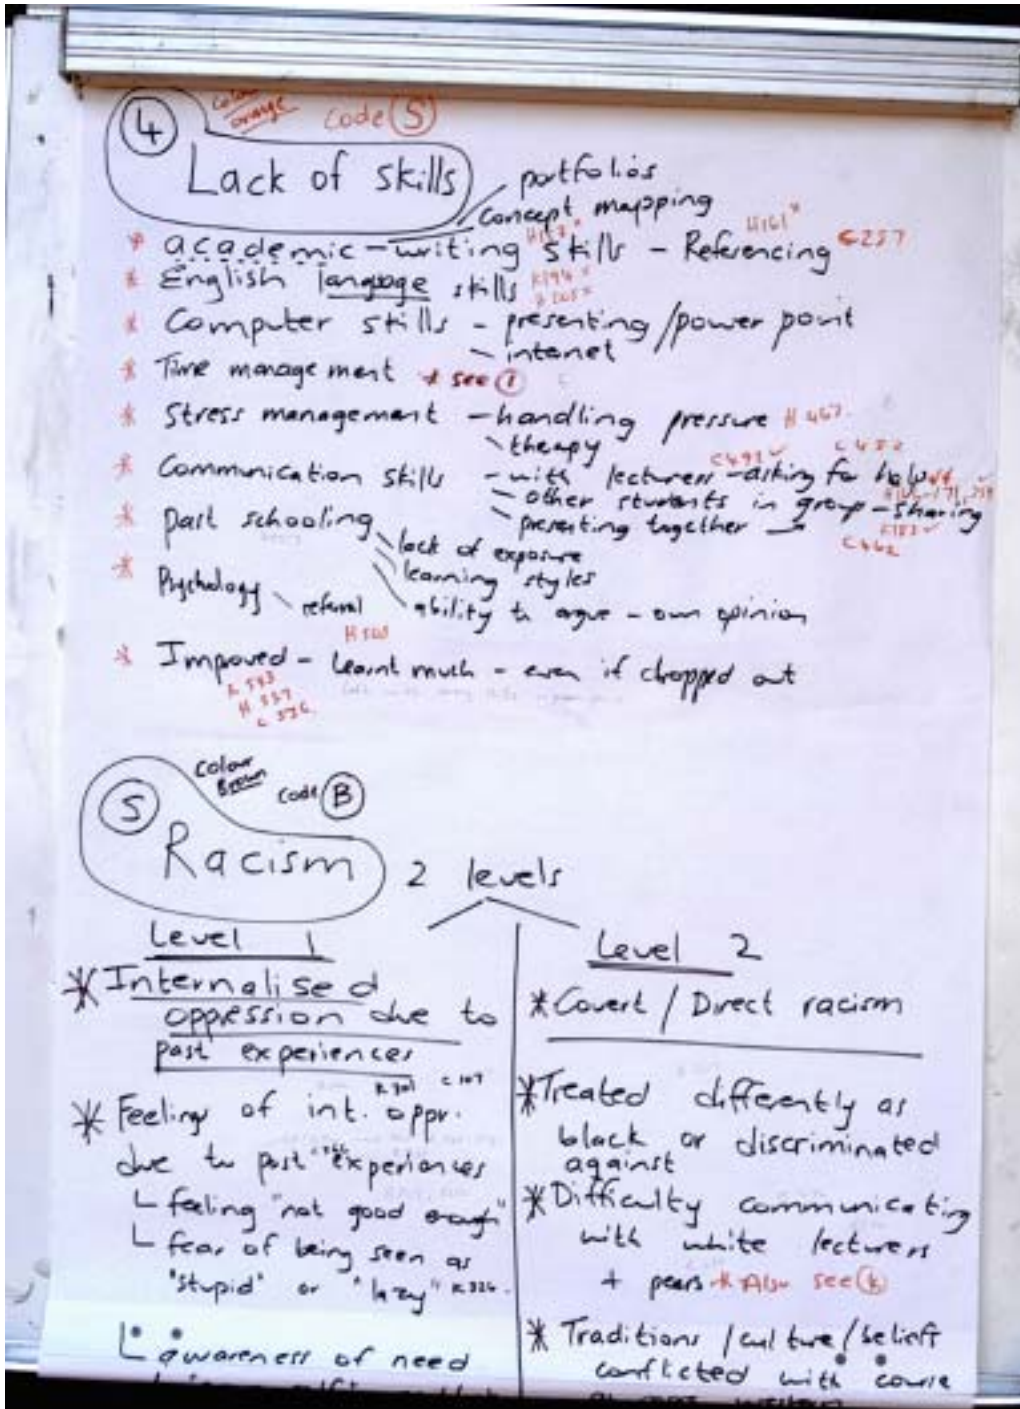 4
Colour orange
Code S
Lack of skills
portfolios
concept mapping
* academic - writing skills - Referencing C257
H161*
* English language skills
* Computer skills - presenting / power point
- internet
* Time management * see 1
* Stress management - handling pressure H 467
- therapy
* Communication skills - with lecturers - asking for help
- other students in group - sharing
- presenting together
C462
* Past schooling
- lack of exposure
- learning styles
- ability to argue - own opinion
* Psychology - referral
* Improved - learnt much - even if dropped out
H 537
5
Colour Brown
Code B
Racism
2 levels
Level 1
* Internalised
oppression due to
past experiences
* Feelings of int. oppr.
due to past experiences
feeling "not good enough"
fear of being seen as
"stupid" or "lazy" K 326.
awareness of need
Level 2
* Covert / Direct racism
* Treated differently as
black or discriminated
against
* Difficulty communicating
with white lecturers
+ peers * Also see
* Traditions / culture / beliefs
conflicted with course